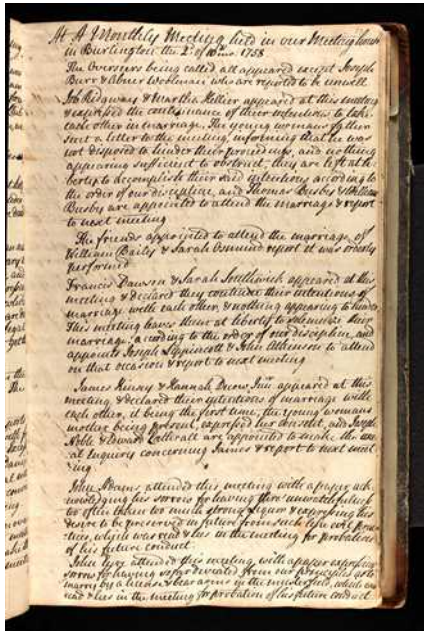 At A Monthly Meeting held in our Meeting house
in Burlington the 2d of 10mo 1758
The Overseers being called all appeared except Joseph
Burr & Abner Woolman who are reported to be unwell
Job Ridgway & Martha Hellier appeared at this meeting
& expressed the continuance of their intentions to take
each other in marriage. The young womans father
sent a letter to the meeting informing that he was
not disposed to hinder their proceedings, and nothing
appearing sufficient to obstruct, they are left at li-
berty to accomplish their said intentions according to
the order of our discipline, and Thomas Busby & William
Busby are appointed to attend the marriage & report
to next meeting
The friends appointed to attend the marriage of
William Bailey & Sarah Osmund report it was orderly
performed
Francis Dawson & Sarah Southwick appeared at this
meeting & declared they continue their intentions of
marriage with each other, & nothing appearing to hinder
This meeting leaves them at liberty to solemnize their
marriage, acording to the order of our discipline, and
appoints Joseph Lippincott & John Atkinson to attend
on that occasion & report to next meeting
James Kinsey & Hannah Decow Junr appeared at this
meeting & declared their intentions of marriage with
each other, it being the first time, the young womans
mother being present, expressed her consent, and Joseph
Noble & Edward Cathrall are appointed to make the usu-
al Inquiry concerning James & report to next meet
ing
John Adams attended this meeting with a paper ack-
nowledging his sorrow for having thro' unwatchfulness
too often taken too much strong liquor & expressing his
desire to be preserved in future from such evil prac-
tices, which was read & lies in the meeting for probation
of his future conduct
John attended this meeting with a paper expressing
sorrow for having so far deviated from our principles as to
marry by a license & bear arms in the muster field, which was
read & lies in the meeting for probation of his future conduct